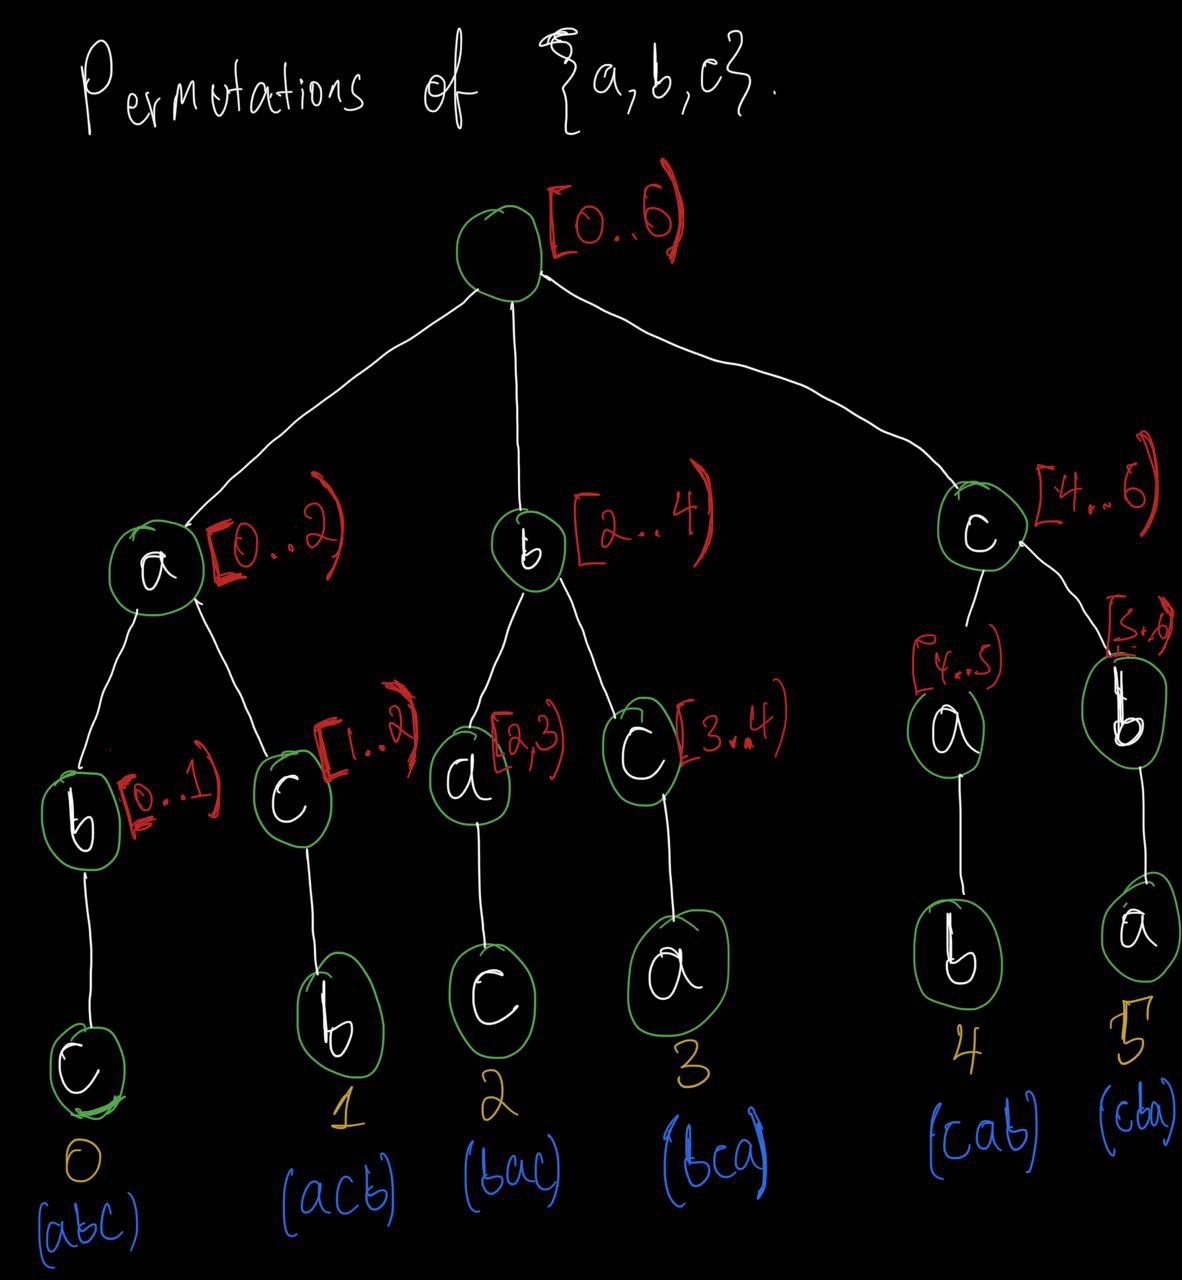 Permutations of {a,b,c}.
[0..6)
a [0..2)
b [2..4)
c [4..6)
b [0..1)
c [1..2)
a [2,3)
c [3..4)
[4..5)
a
[5..6)
b
c
b
c
a
b
a
0
1
2
3
4
5
(abc)
(acb)
(bac)
(bca)
(cab)
(cba)